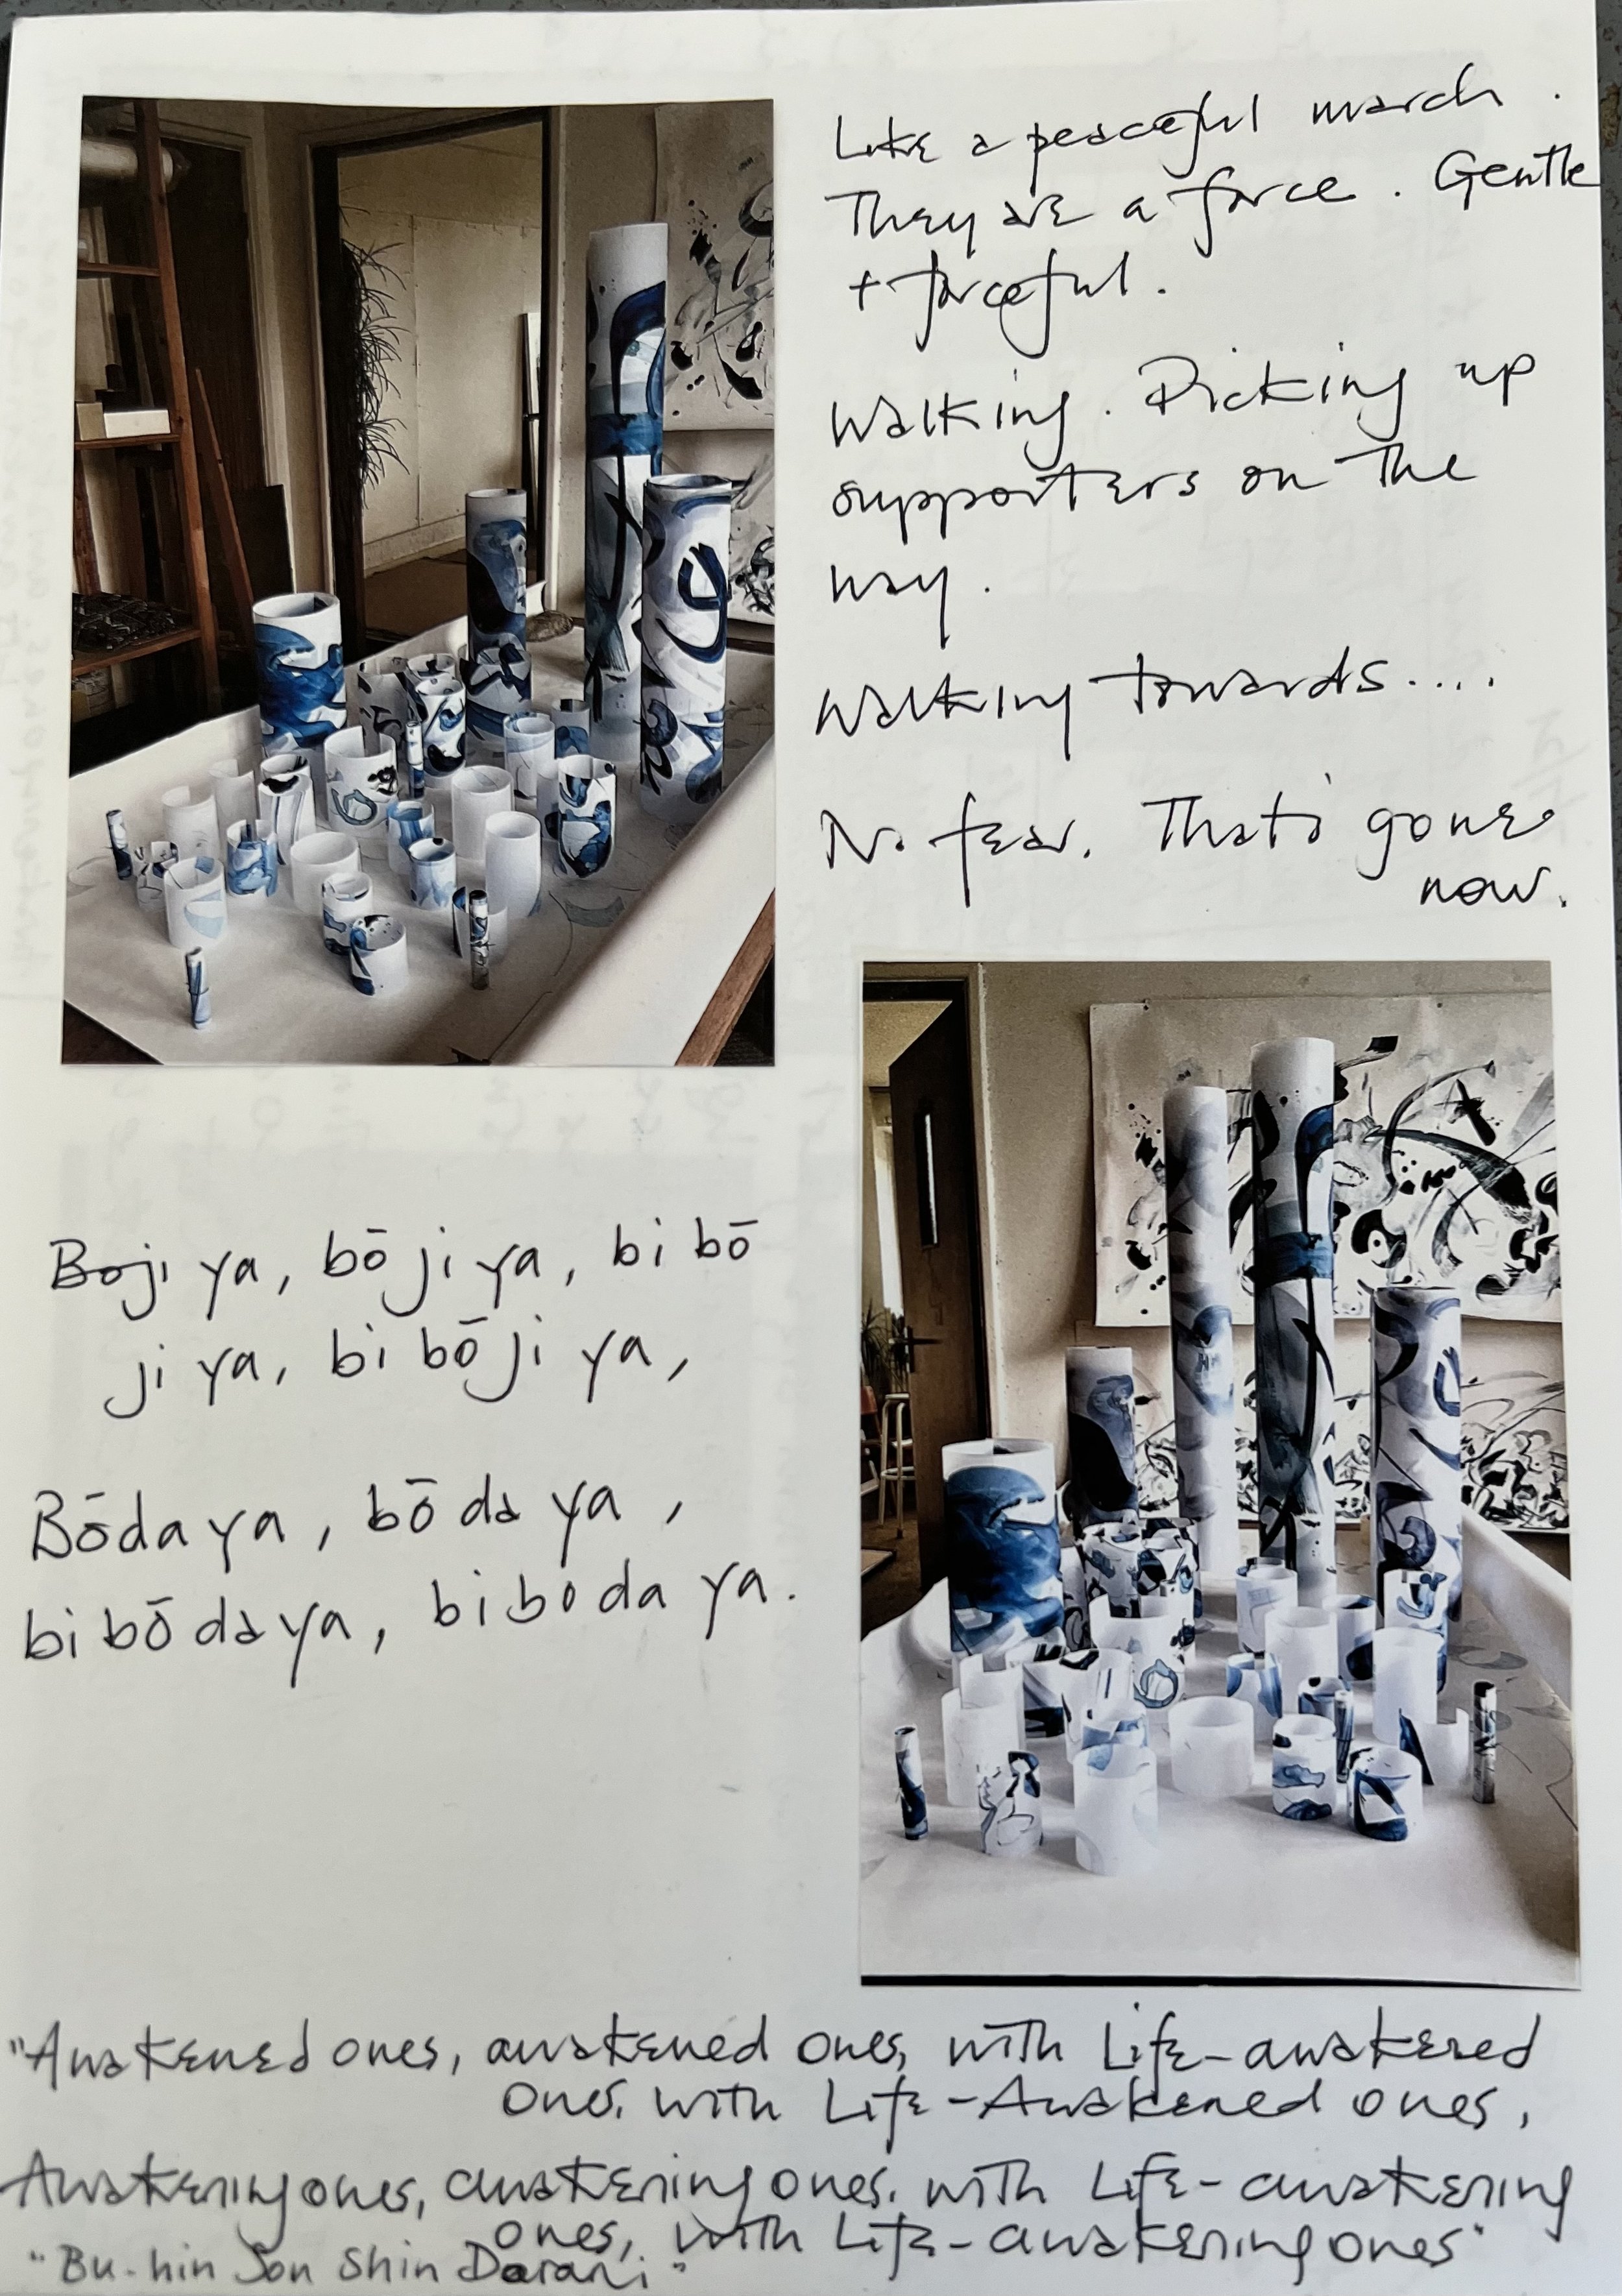 Like a peaceful march.
They are a force. Gentle
+ forceful.
Walking. Picking up
supporters on the
way.
Walking towards....
No fear. That's gone
now.
Boji ya, bō ji ya, bi bō
ji ya, bi bō ji ya,
Bōda ya, bō da ya,
bi bō da ya, bi bo da ya.
"Awakened ones, awakened ones, with Life-awakened
ones, with Life-Awakened ones,
Awakening ones, awakening ones, with Life-awakening
ones, with Life-awakening ones"
"Bu-hin Son Shin Darani"